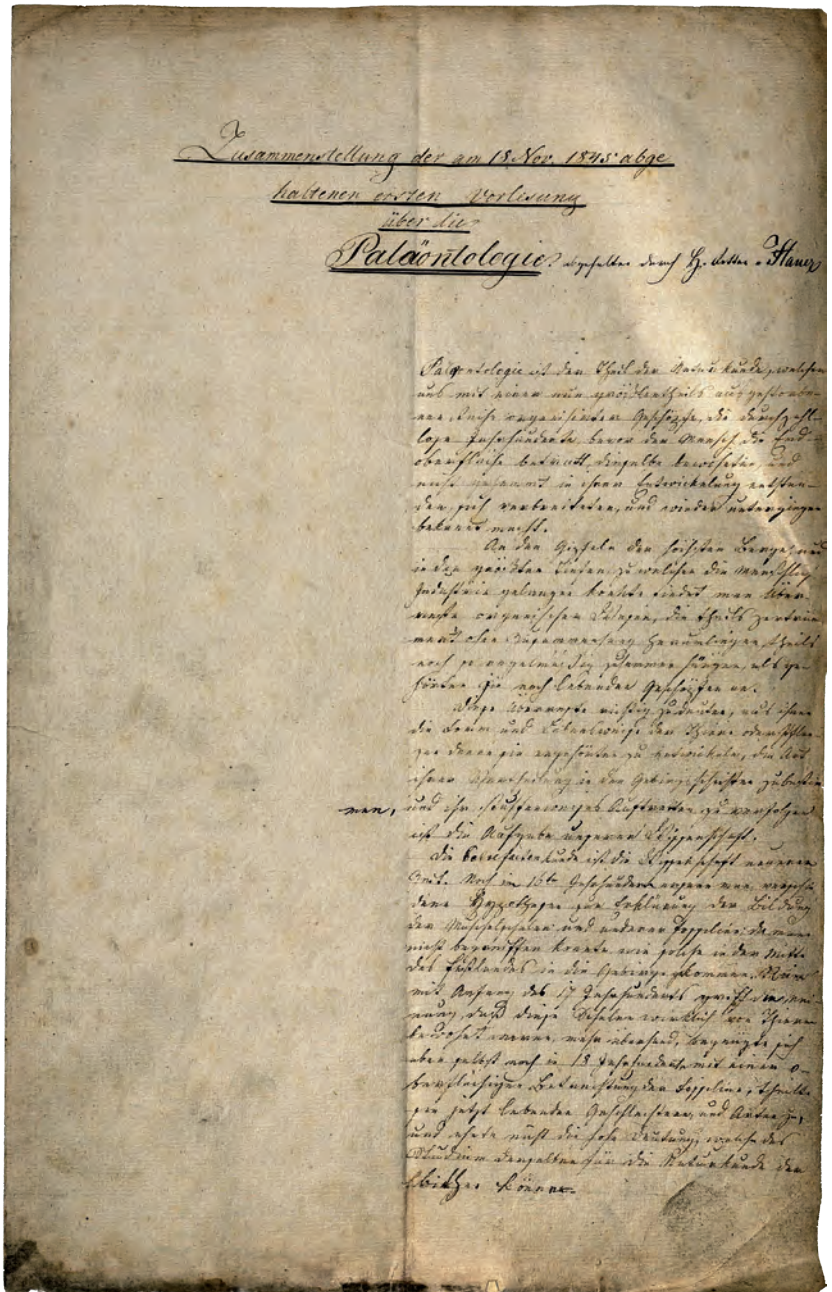 Zusammenstellung der am 18 Nov. 1845 abge
haltenen ersten Vorlesung
über die
Paläontologie. abgehalten durch H. Ritter v Hauer
Paläontologie ist der Theil der Naturkunde, welcher
uns mit einer nun größtentheils ausgestorbe-
nen Reihe organisirter Geschöpfe, die durch zahl-
lose Jahrhunderte, bevor der Mensch die Erd-
oberfläche betratt, dieselbe bewohnten, und
in ihrer Entwickelung entstan-
den, sich verbreiteten, und wieder untergingen
bekannt macht.
An den Gipfeln der höchsten Berge, und
in den größten Tiefen, zu welchen die menschliche
Industrie gelangen konnte findet man Über-
reste organischer Körper, die theils zertrüm-
mert ohne Zusammenhang herumliegen, theils
noch so regelmäßig zusammen hängen, als ge-
hörten sie noch lebenden Geschöpfen an.
Diese Überreste richtig zu deuten, aus ihnen
die Form und Lebensweise der Thiere oder Pflan-
zen denen sie angehörten zu entwickeln, die Art
ihrer Vertheilung in den Gebirgsschichten zu bestim
men, und ihr stufenweises Auftretten zu verfolgen
ist die Aufgabe unserer Wissenschaft.
Die Petrefactenkunde ist die Wissenschaft neuerer
Zeit. Noch im 16ten Jahrhunderte ersann man verschie
dene Hypothesen zur Erklärung der Bildung
der Muschelschalen und anderer Fossilien, da man
nicht begreiffen konnte wie solche in der Mitte
des Festlandes in die Gebirge gekommen. Nur
mit Anfang des 17 Jahrhunderts greift die Mei-
nung, daß diese Schalen wirklich von Thieren
bewohnt waren, mehr überhand, begnügte sich
aber selbst noch im 18 Jahrhunderte mit einer o-
berflächigen Betrachtung der Fossilien, theilte
sie jetzt lebenden Geschlechtern, und Arten zu,
und ahnte nicht die hohe Deutung, welche das
Studium derselben für die Naturkunde der
könne.